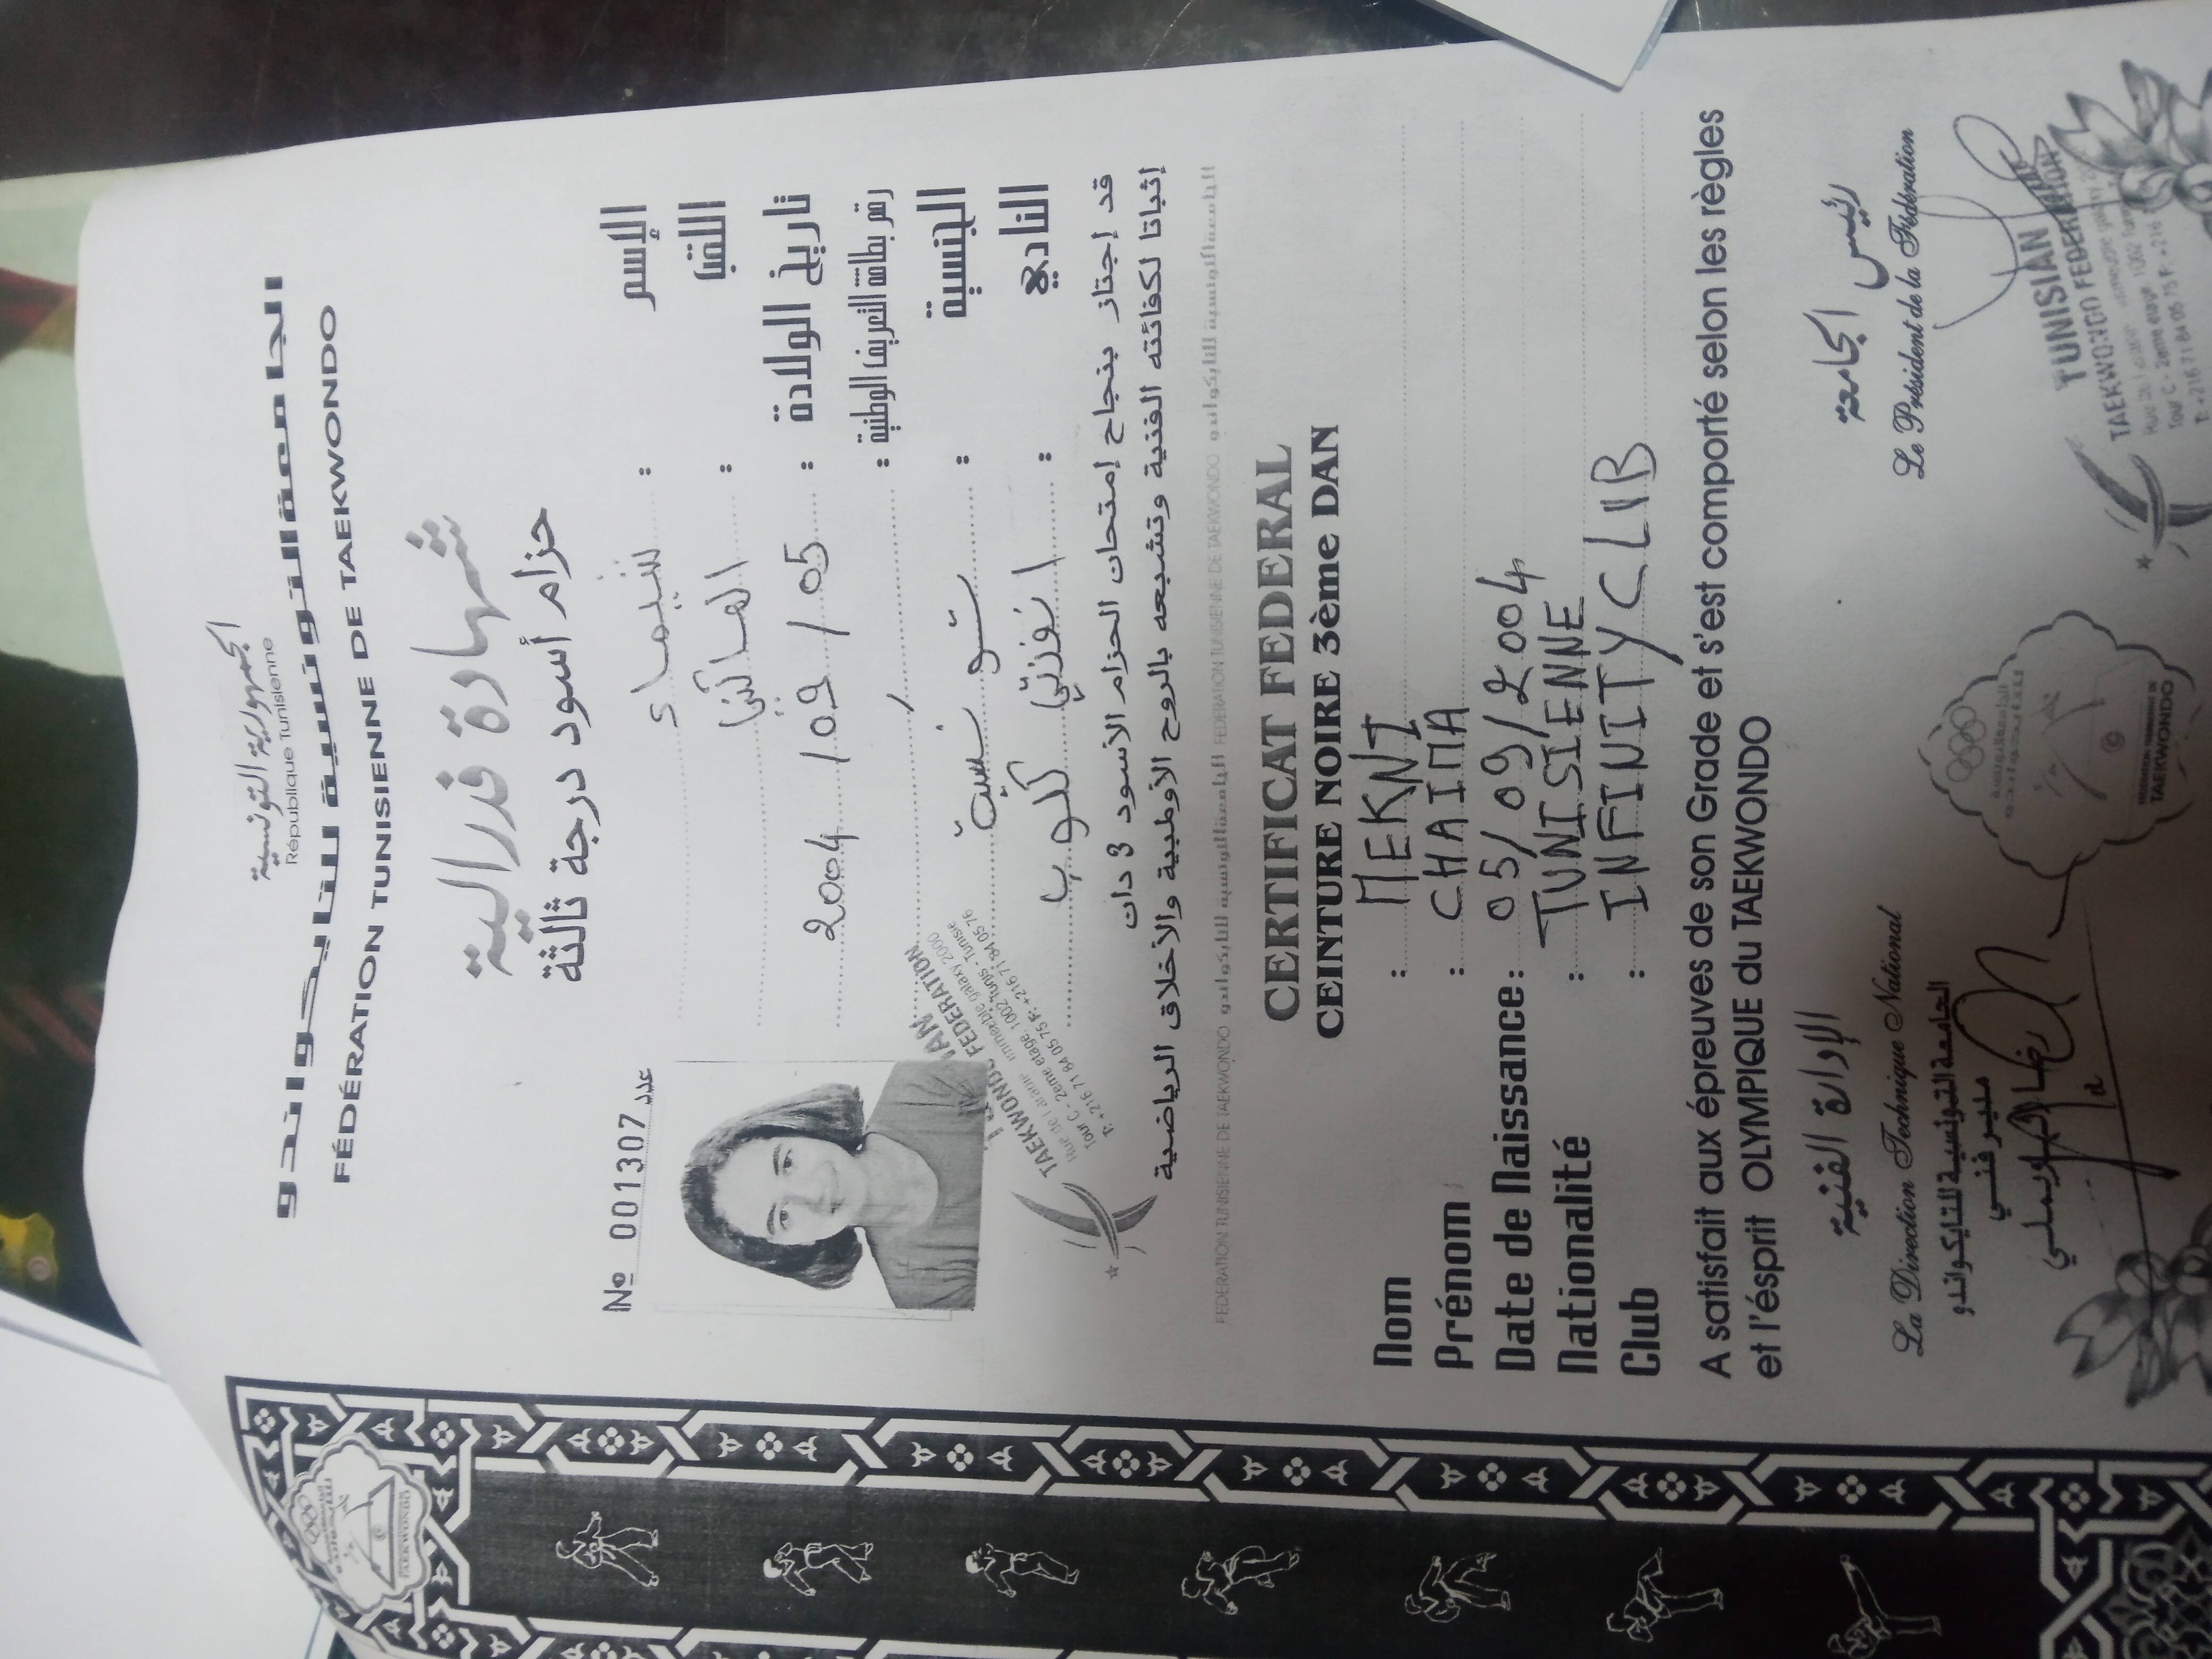 الجمهورية التونسية
République Tunisienne
الجامعة التونسية للتايكواندو
FÉDÉRATION TUNISIENNE DE TAEKWONDO
شهادة فدرالية
حزام أسود درجة ثالثة
№ 001307 عدد
الإسم : شيماء
اللقب :
تاريخ الولادة : 05 / 09 / 2004
رقم بطاقة التعريف الوطنية : /
الجنسية : تونسية
النادي : كلوب
قد إجتاز بنجاح إمتحان الحزام الأسود 3 دان
إثباتا لكفائته الفنية وتشبعه بالروح الأولمبية والأخلاق الرياضية
TAEKWONDO FEDERATION
immeuble galaxy 2000
Tour C - 2ème étage, 1002 Tunis - Tunisie
T: +216 71 84 05 75 F: +216 71 84 05 76
FEDERATION TUNISIENNE DE TAEKWONDO الجامعة التونسية للتايكواندو FEDERATION TUNISIENNE DE TAEKWONDO الجامعة التونسية للتايكواندو
CERTIFICAT FEDERAL
CEINTURE NOIRE 3ème DAN
Nom : MEKNI
Prénom : CHAIMA
Date de Naissance : 05/09/2004
Nationalité : TUNISIENNE
Club : INFINITY CLUB
A satisfait aux épreuves de son Grade et s'est comporté selon les règles
et l'ésprit OLYMPIQUE du TAEKWONDO
الإدارة الفنية
La Direction Technique National
رئيس الجامعة
Le Président de la Fédération
الجامعة التونسية للتايكواندو
مدير فني
TUNISIAN
TAEKWONDO FEDERATION
TAEKWONDO
TAEKWONDO